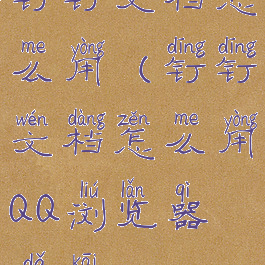 me yòng dīng dīng
么用（钉钉
wén dàng zěn me yòng
文档怎么用
liú lǎn qì
QQ浏览器
dǎ kāi